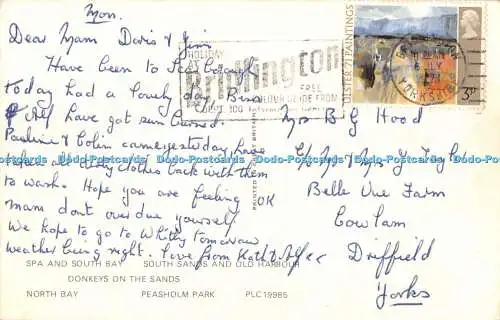 Mon.
Dear Mam Doris & Jim
Have been to Scarborough
today had a lovely day Brian
& Alf have got sun burned.
Pauline & Colin came yesterday, have
taken all dirty clothes back with them
to wash. Hope you are feeling OK
mam dont over due yourself
We hope to go to Whitby tomorrow
weather being right. Love from Kath & Alf xx
HOLIDAY
AT
Bridlington
FREE
COLOUR GUIDE FROM
ULSTER '71 PAINTINGS
YORKSHIRE
3p
PRINTED IN GREAT BRITAIN
Mrs B G Hood
C/o Mr & Mrs J Taylor
Belle Vue Farm
Cowlam
Driffield
Yorks
SPA AND SOUTH BAY SOUTH SANDS AND OLD HARBOUR
DONKEYS ON THE SANDS
NORTH BAY PEASHOLM PARK PLC19985
Dodo-Postcards Dodo-Postcards Dodo-Postcards Dodo-Postcards Dodo-Postcards Dodo-Postcards